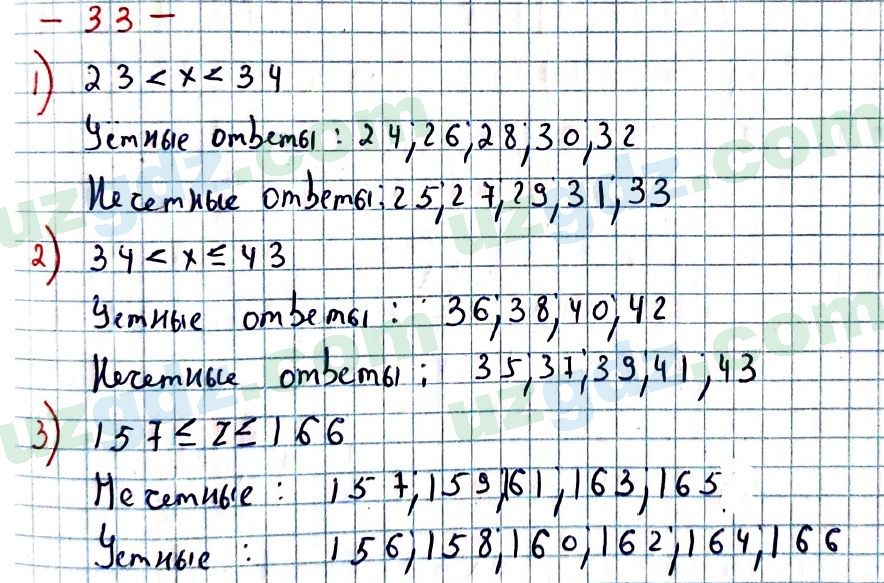 - 33 -
1) 23 < x < 34
Чётные ответы : 24; 26; 28; 30; 32
Нечетные ответы: 25; 27; 29; 31; 33
2) 34 < x ≤ 43
Четные ответы : 36; 38; 40; 42
Нечетные ответы : 35; 37; 39; 41; 43
3) 157 ≤ z ≤ 166
Нечетные : 157; 159; 161; 163; 165
Четные : 156; 158; 160; 162; 164; 166
uzgdz.com
uzgdz.com
uzgdz.com
uzgdz.com